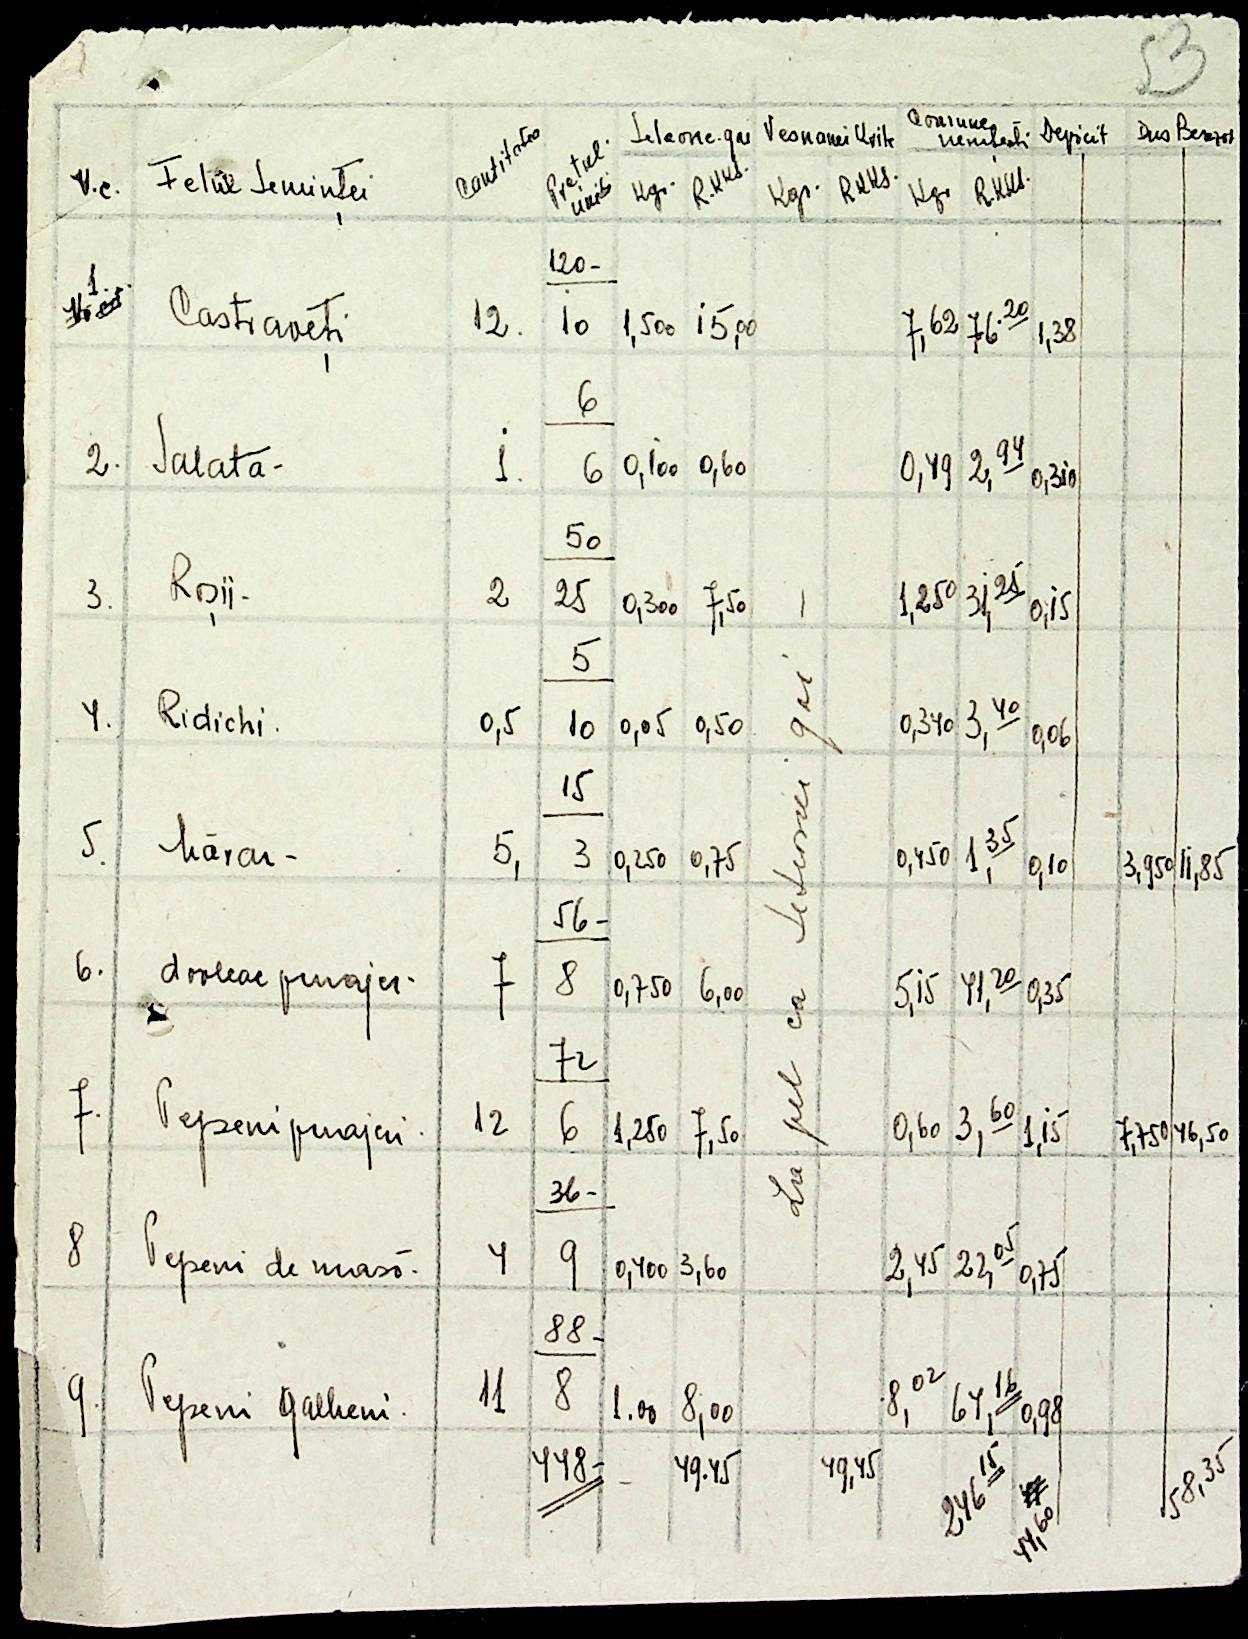 53
N.c. Felul Seminței Cantitatea Prețul unit Kgr. R.KKS. Kgr. R.KKS. Comune nemțești Kgr. R.KKS. Deficit Dus Berezov
120-
1. Castraveți 12. 10 1,500 15,00 7,62 76.20 1,38
6
2. Salată- 1. 6 0,100 0,60 0,49 2,94 0,310
50
3. Roșii- 2 25 0,300 7,50 1,250 31,25 0,15
5
4. Ridichi. 0,5 10 0,05 0,50 0,340 3,40 0,06
15
5. Mărar- 5, 3 0,250 0,75 0,450 1,35 0,10 3,950 11,85
56-
6. dovleac 7 8 0,750 6,00 5,15 41,20 0,35
72
7. Pepeni 12 6 1,250 7,50 0,60 3,60 1,15 7,750 46,50
36-
8 Pepeni de masă. 4 9 0,400 3,60 2,45 22,05 0,75
88-
9. Pepeni galbeni. 11 8 1.00 8,00 8,02 64,16 0,98
448- 49.45 49,45 246 15 44,60 58,35
La fel ca